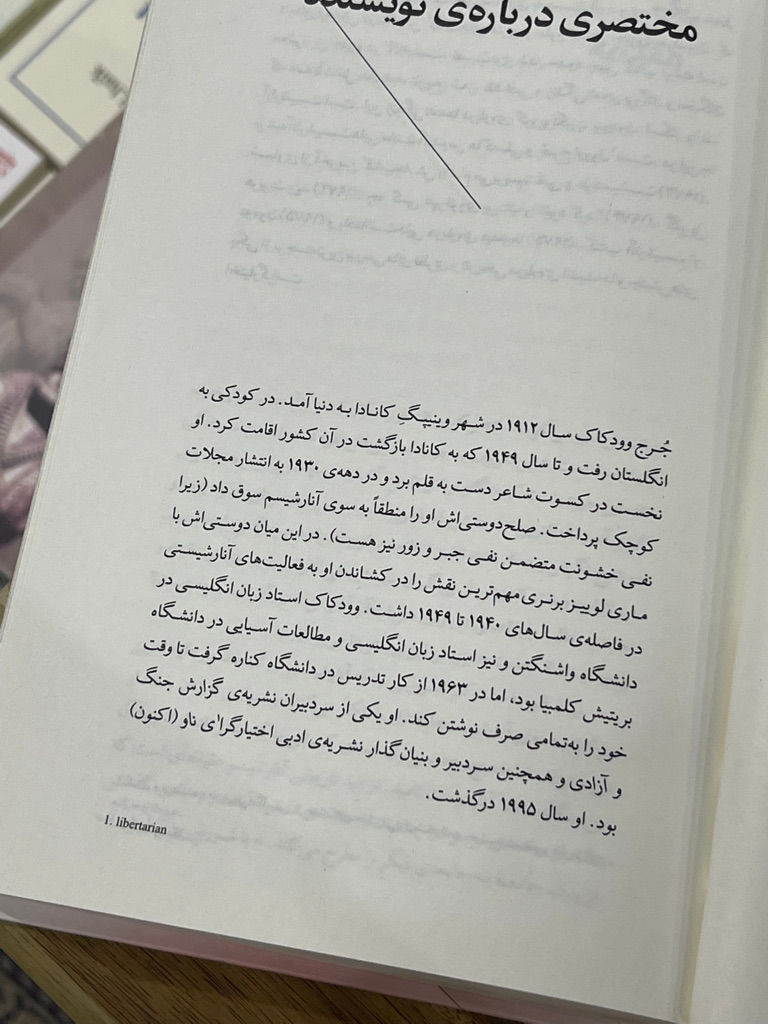 مختصری درباره‌ی نویسنده
جُرج وودکاک سال ۱۹۱۲ در شهر وینیپگِ کانادا به دنیا آمد. در کودکی به
انگلستان رفت و تا سال ۱۹۴۹ که به کانادا بازگشت در آن کشور اقامت کرد. او
نخست در کسوت شاعر دست به قلم برد و در دهه‌ی ۱۹۳۰ به انتشار مجلات
کوچک پرداخت. صلح‌دوستی‌اش او را منطقاً به سوی آنارشیسم سوق داد (زیرا
نفی خشونت متضمن نفی جبر و زور نیز هست). در این میان دوستی‌اش با
ماری لوییز برنری مهم‌ترین نقش را در کشاندن او به فعالیت‌های آنارشیستی
در فاصله‌ی سال‌های ۱۹۴۰ تا ۱۹۴۹ داشت. وودکاک استاد زبان انگلیسی در
دانشگاه واشنگتن و نیز استاد زبان انگلیسی و مطالعات آسیایی در دانشگاه
بریتیش کلمبیا بود، اما در ۱۹۶۳ از کار تدریس در دانشگاه کناره گرفت تا وقت
خود را به‌تمامی صرف نوشتن کند. او یکی از سردبیران نشریه‌ی گزارش جنگ
و آزادی و همچنین سردبیر و بنیان‌گذار نشریه‌ی ادبی اختیارگرا¹ی ناو (اکنون)
بود. او سال ۱۹۹۵ درگذشت.
1. libertarian